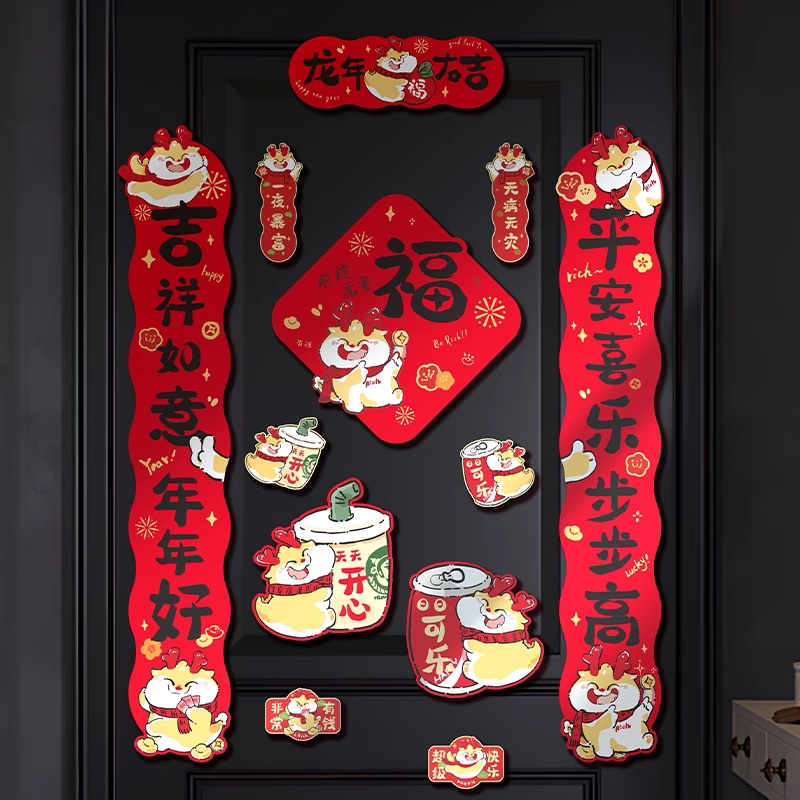 龙年大吉
happy new year
福
吉祥如意年年好
happy
Year!
平安喜乐步步高
Rich
rich~
lucky!
Rich
一夜暴富
无病无灾
福
Be Rich!!
Rich
天天
开心
可乐
天天
开心
可乐
非常有钱
超级快乐